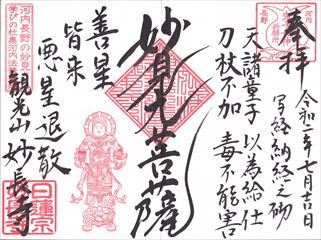 奉拝
令和二年七月吉日
写経納経之砌
天諸童子 以為給仕
刀杖不加 毒不能害
妙見大菩薩
善星皆来
悪星退散
観光山 妙長寺
河内長野の妙見
日蓮宗